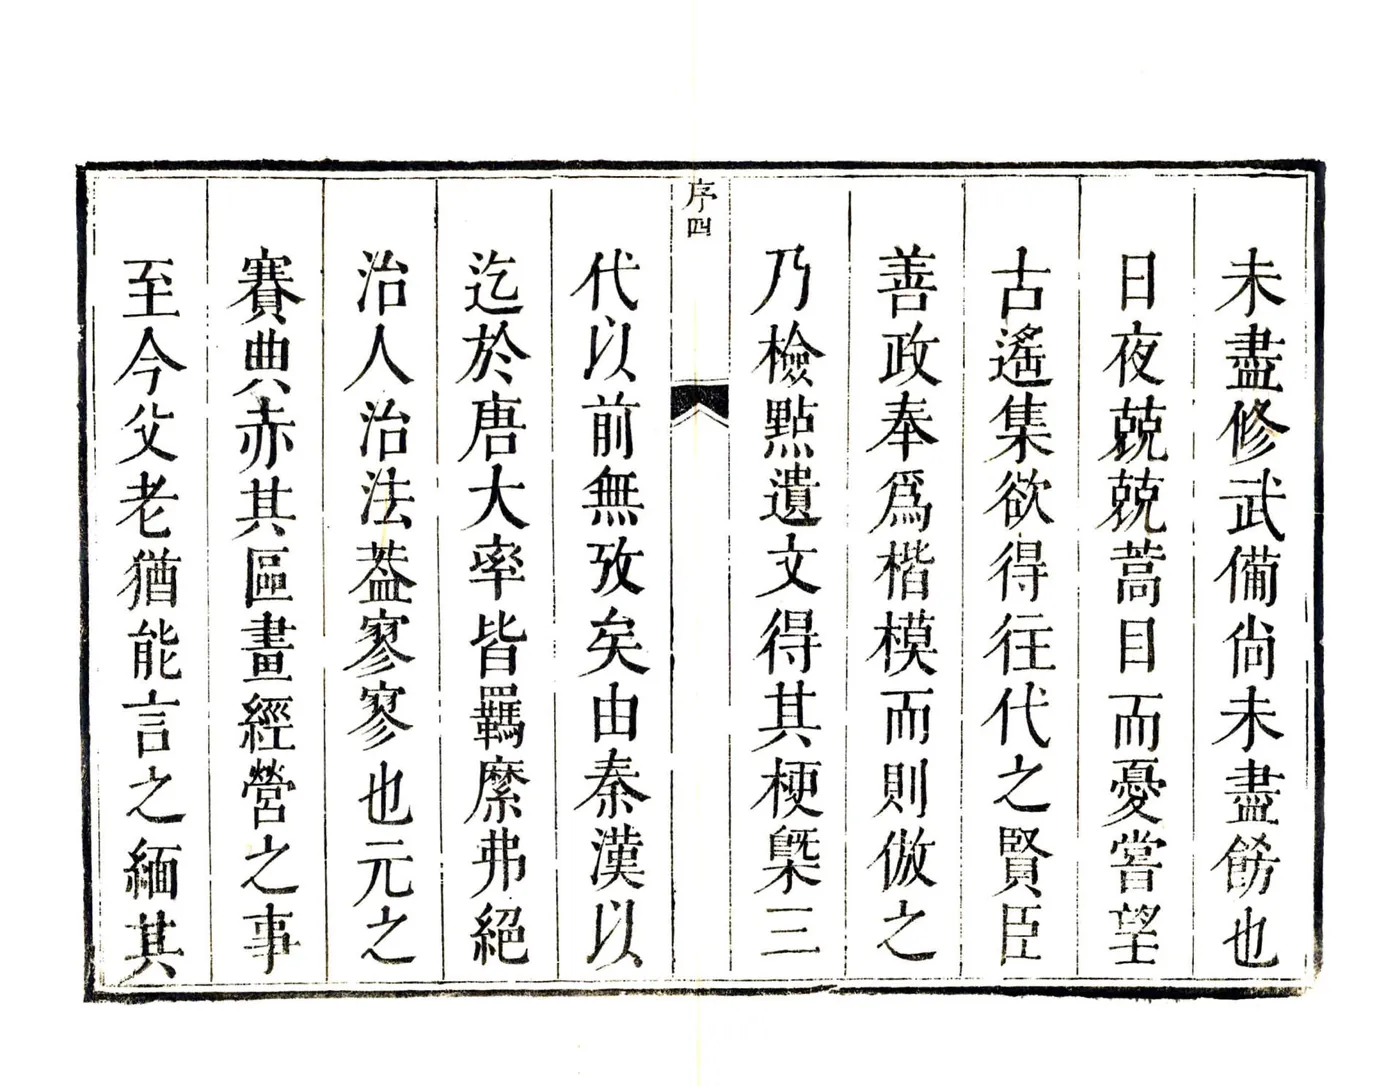 未盡修武備尙未盡餝也
日夜兢兢蒿目而憂嘗望
古遙集欲得往代之賢臣
善政奉爲楷模而則倣之
乃檢點遺文得其梗槩三
序四
代以前無攷矣由秦漢以
迄於唐大率皆羈縻弗絕
治人治法葢寥寥也元之
賽典赤其區畫經營之事
至今父老猶能言之緬其